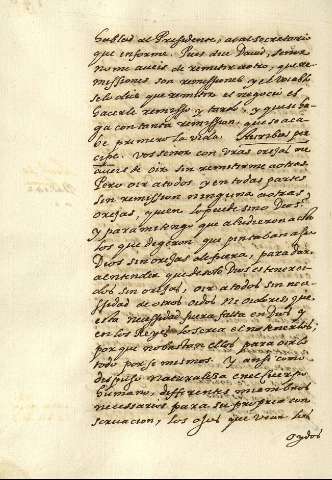 hablad al Presidente, o a el secretario
que informe. Pues dice David, señor
no me aveis de remitir a otro, que re
misiones son remisiones y el vocablo
se lo dice que remitir el negocio es
hacerle remisso y tardo, y que se ha
ga con tanta remission, que se aca
be primero la vida. Auribus per
cipe. vos señor con vras orejas me
aveis de oir sin remitirme a otras.
Pero oir a todos y en todas partes
sin remission ninguna a otras
orejas, quien lo puede sino Dios?
y para mi tengo que aludieron a esto
los que digeron que pintaban a su
Dios sin orejas de fuera, para dar
a entender que de solo Dios es tener oi
dos sin orejas, oir a todos sin nece
ssidad de otros oidos ni oidores, que
esta necessidad fuera falta en Dios y
en los Reyes lo sera el no tenerlos,
por que no bastan ellos para oirlo
todo por si mesmos. Y ansi como
dispuso naturaleza en el cuerpo
humano, differentes miembros
necessarios para su propria con
servacion, los ojos que vean los
oydos